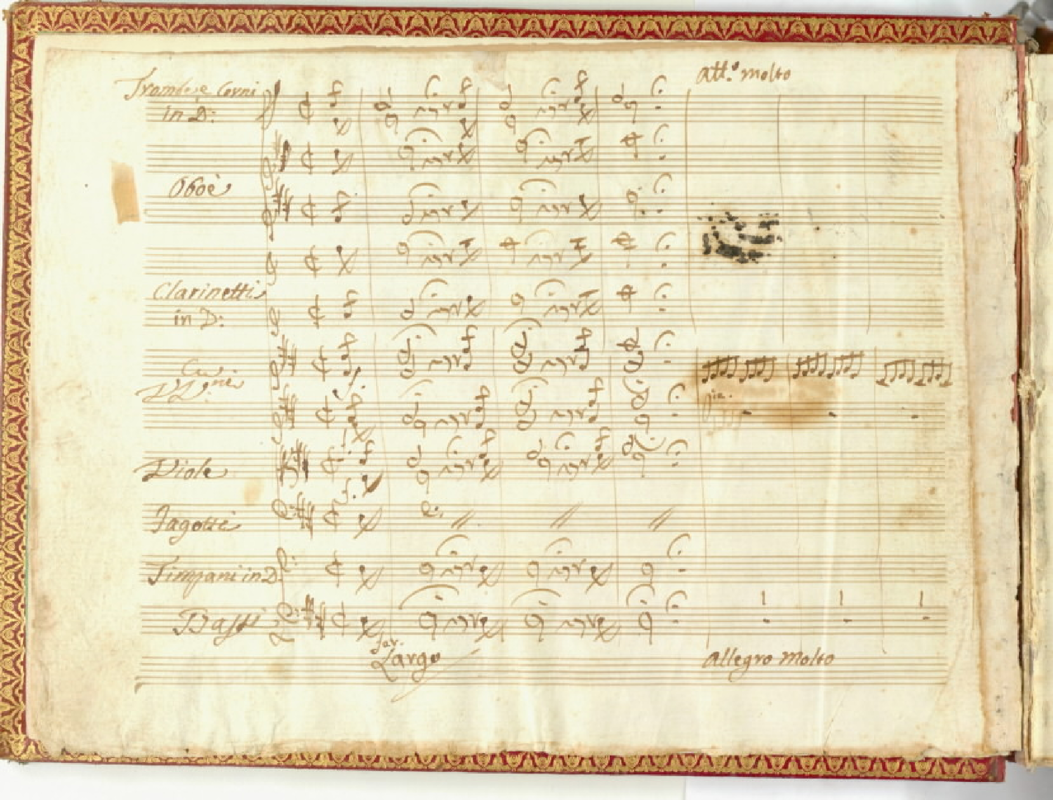 All.º Molto
Trombe e Corni
in D:
Oboè
Clarinetti
in D:
Viole
Fagotti
Timpani in D
Bassi
Largo
Allegro Molto